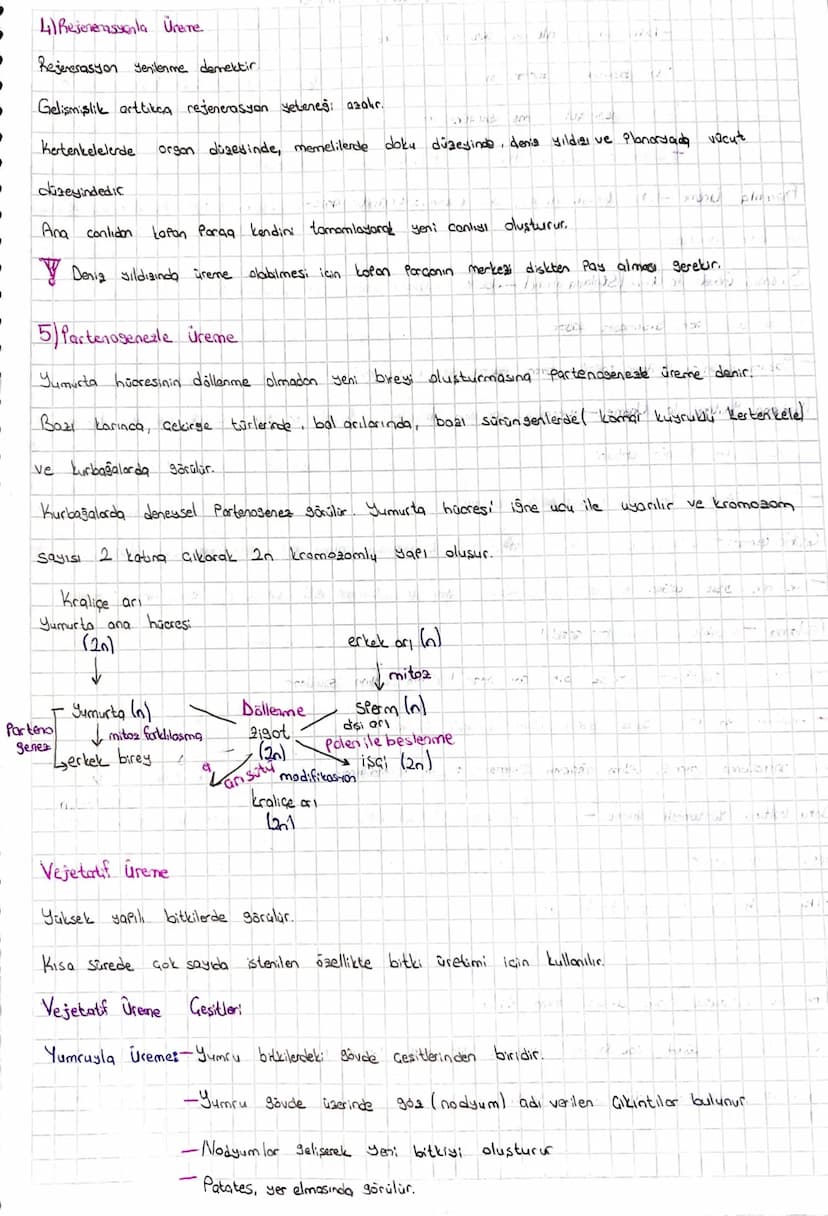 4) Rejenerasyonla Üreme
Rejenerasyon yenilenme demektir.
Gelişmişlik arttıkça rejenerasyon yeteneği azalır.
Kertenkelelerde organ düzeyinde, memelilerde doku düzeyinde, deniz yıldızı ve Planaryada vücut
düzeyindedir.
Ana canlıdan kopan parça kendini tamamlayarak yeni canlıyı oluşturur.
Deniz yıldızında üreme olabilmesi için kopan parçanın merkezi diskten pay alması gerekir.
5) Partenogenezle üreme
Yumurta hücresinin döllenme olmadan yeni bireyi oluşturmasına partenogenezle üreme denir.
Bazı karınca, çekirge türlerinde, bal arılarında, bazı sürüngenlerde( kamçı kuyruklu kertenkele)
ve kurbağalarda görülür.
Kurbağalarda deneysel Partenogenez görülür. Yumurta hücresi iğne ucu ile uyarılır ve kromozom
sayısı 2 katına çıkarak 2n kromozomlu yapı oluşur.
Kraliçe arı
Yumurta ana hücresi
(2n)
erkek arı (n)
mitoz
Yumurta (n)
Döllenme
sperm (n)
Parteno
genez
mitoz farklılaşma
zigot
(2n)
dişi arı
polen ile beslenme
erkek birey
işçi (2n)
arı sütü
modifikasyon
kraliçe arı
(2n)
Vejetatif Üreme
Yüksek yapılı bitkilerde görülür.
Kısa sürede çok sayıda istenilen özellikte bitki üretimi için kullanılır.
Vejetatif Üreme Çeşitleri
Yumruyla Üreme: - Yumru bitkilerdeki gövde çeşitlerinden biridir.
- Yumru gövde üzerinde göz (nodyum) adı verilen çıkıntılar bulunur
- Nodyumlar gelişerek yeni bitkiyi oluşturur
- Patates, yer elmasında görülür.